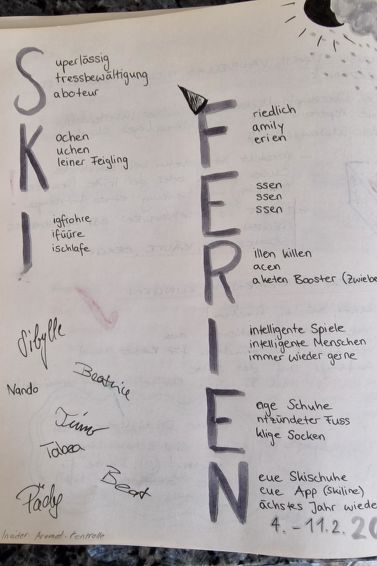 S
uperlässig
tressbewältigung
aboteur
K
ochen
uchen
leiner Feigling
I
igfrohre
ifüüre
ischlafe
F
riedlich
amily
erien
E
ssen
ssen
ssen
R
illen killen
acen
aketen Booster (Zwiebe
I
intelligente Spiele
intelligente Menschen
immer wieder gerne
E
nge Schuhe
ntzündeter Fuss
klige Socken
N
eue Skischuhe
eue App (Skiline)
ächstes Jahr wiede
4. - 11.2. 20
Sibylle
Beatrice
Nando
Timo
Tabea
Beat
Pädy